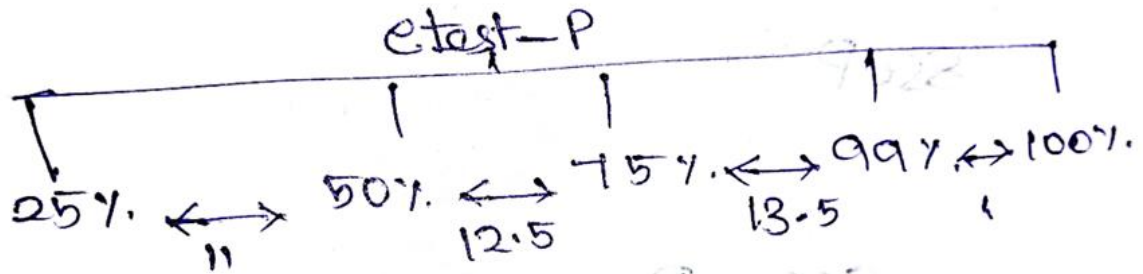 etest-P
25%. ↔ 50%. ↔ 75%. ↔ 99% ↔ 100%.
11 12.5 13.5 1